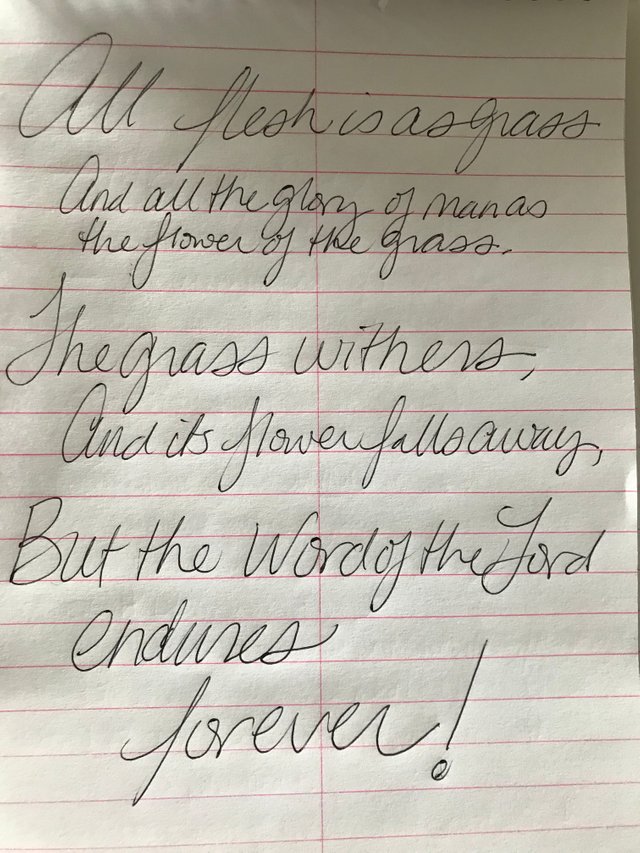 All flesh is as grass
And all the glory of man as
the flower of the grass.
The grass withers,
And its flower falls away,
But the Word of the Lord
endures
forever!